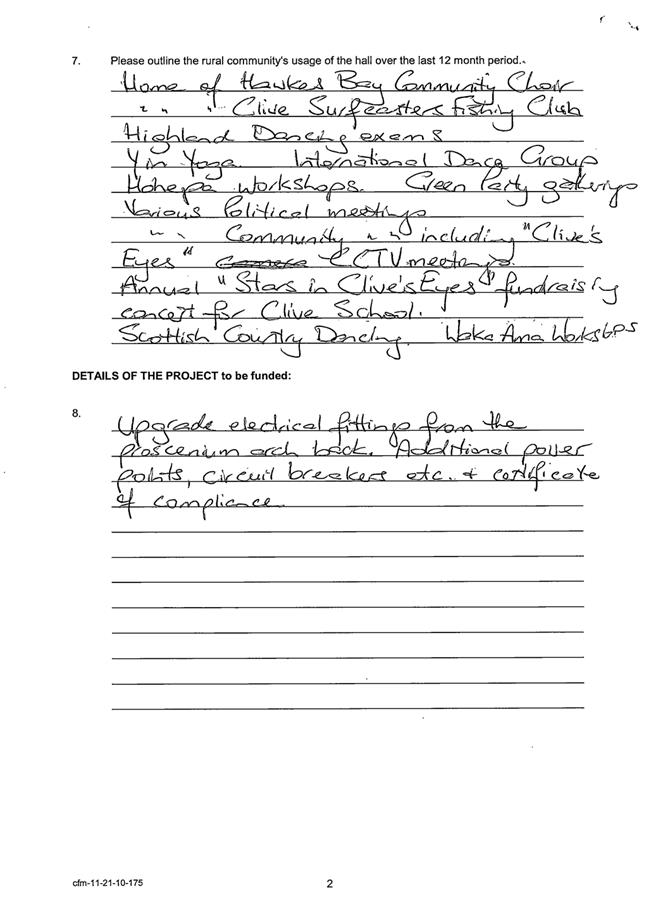 7. Please outline the rural community's usage of the hall over the last 12 month period.
Home of Hawkes Bay Community Choir
" " " Clive Surfcasters Fishing Club
Highland Dancing exams
Yin Yoga. International Dance Group
Hohepa Workshops. Green Party gatherings
Various Political meetings
" " Community " " including "Clive's
Eyes" Camera CCTV meetings.
Annual "Stars in Clive's Eyes" fundraising
concert for Clive School.
Scottish Country Dancing. Waka Ama Workshops
DETAILS OF THE PROJECT to be funded:
8. Upgrade electrical fittings from the
proscenium arch back. Additional power
points, circuit breakers etc. + certificate
of compliance.
cfm-11-21-10-175 2